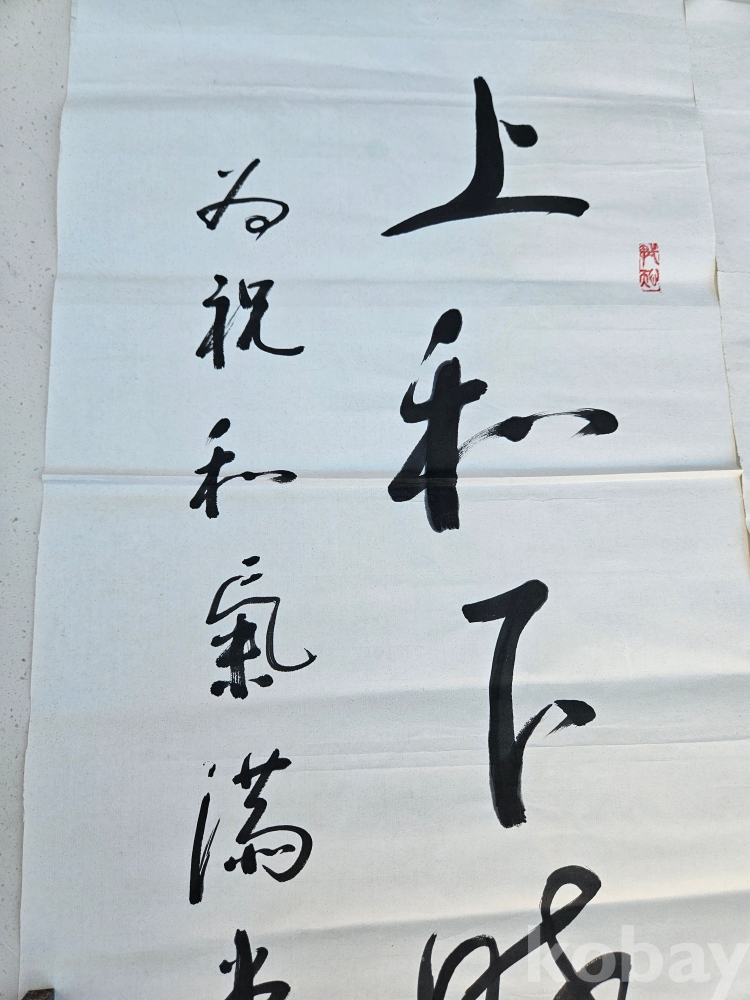 上和下
為祝和氣滿
kobay